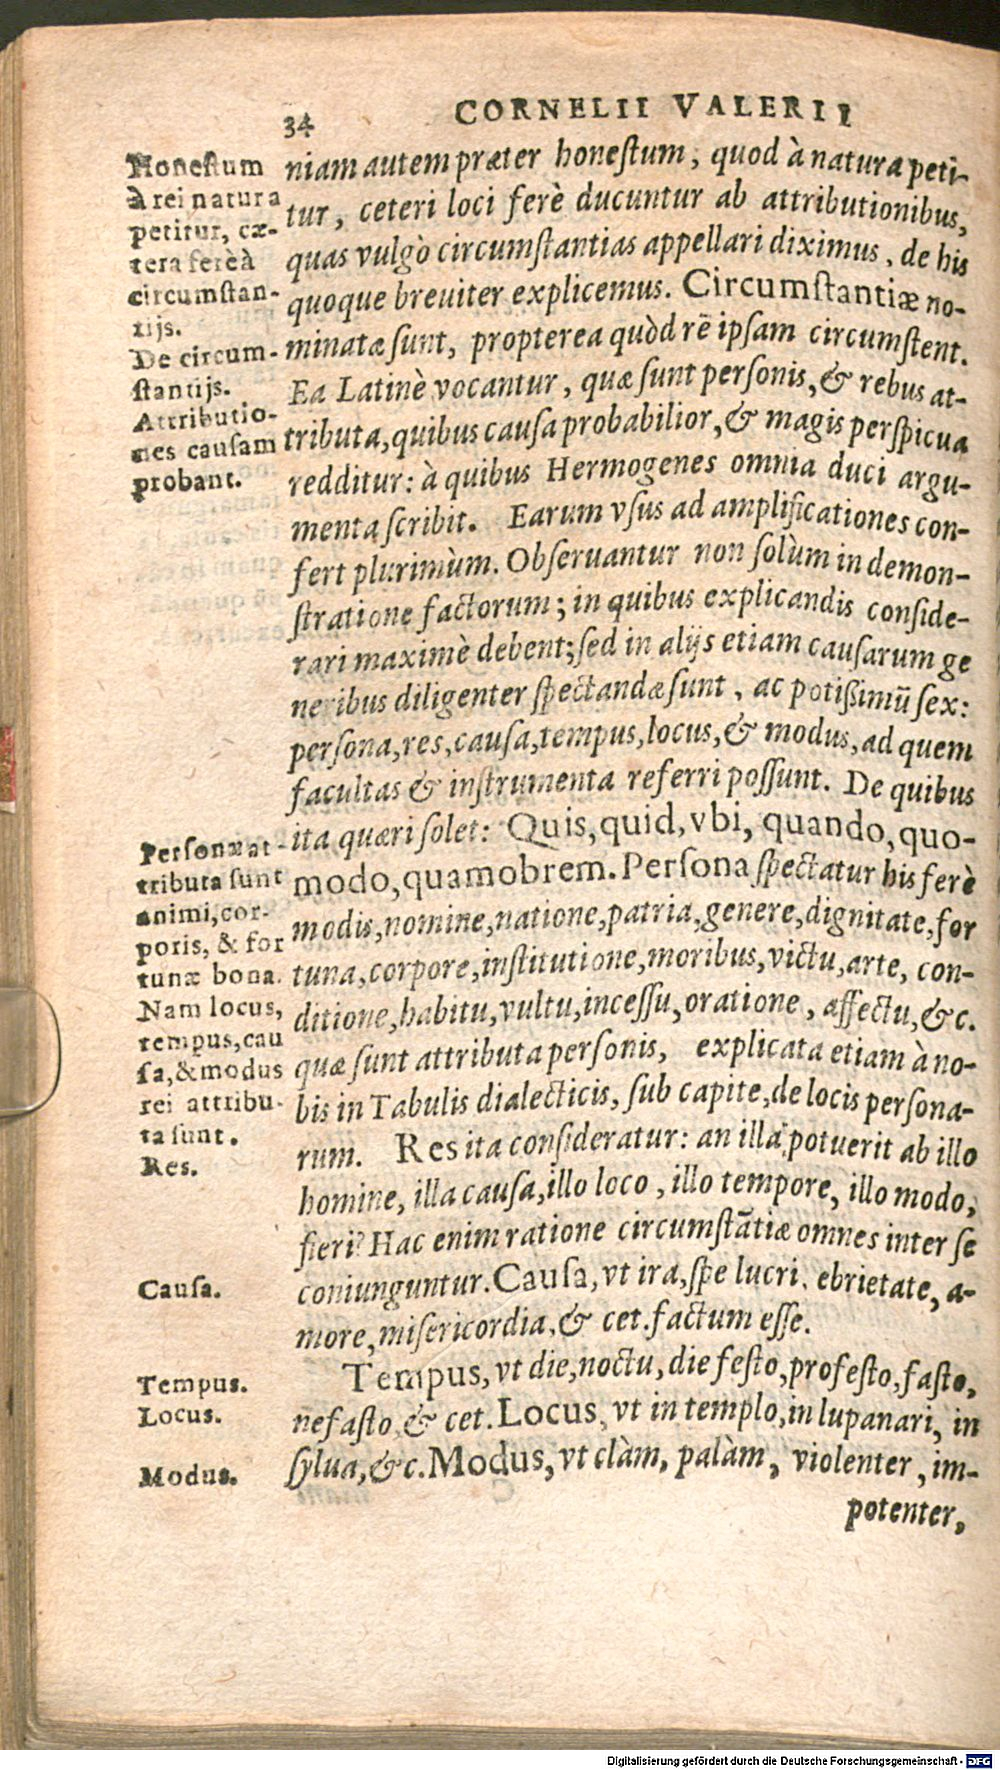 34
CORNELII VALERII
Honeſtum
à rei natura
petitur, cæ-
tera ferè à
circumſtan-
tijs.
De circum-
ſtantijs.
Attributio-
nes cauſam
probant.
niam autem præter honeſtum, quod à natura peti-
tur, ceteri loci ferè ducuntur ab attributionibus,
quas vulgò circumſtantias appellari diximus, de his
quoque breuiter explicemus. Circumſtantiæ no-
minatæ ſunt, propterea quòd rē ipſam circumſtent.
Ea Latinè vocantur, quæ ſunt perſonis, & rebus at-
tributa, quibus cauſa probabilior, & magis perſpicua
redditur: à quibus Hermogenes omnia duci argu-
menta ſcribit. Earum vſus ad amplificationes con-
fert plurimùm. Obſeruantur non ſolùm in demon-
ſtratione factorum; in quibus explicandis conſide-
rari maximè debent; ſed in alijs etiam cauſarum ge
neribus diligenter ſpectandæ ſunt, ac potißimū ſex:
perſona, res, cauſa, tempus, locus, & modus, ad quem
facultas & inſtrumenta referri poſſunt. De quibus
ita quæri ſolet: Quis, quid, vbi, quando, quo-
modo, quamobrem. Perſona ſpectatur his ferè
modis, nomine, natione, patria, genere, dignitate, for
tuna, corpore, inſtitutione, moribus, victu, arte, con-
ditione, habitu, vultu, inceſſu, oratione, affectu, &c.
quæ ſunt attributa perſonis, explicata etiam à no-
bis in Tabulis dialecticis, ſub capite, de locis perſona-
rum. Res ita conſideratur: an illa potuerit ab illo
homine, illa cauſa, illo loco, illo tempore, illo modo,
fieri? Hac enim ratione circumſtātiæ omnes inter ſe
coniunguntur. Cauſa, vt ira, ſpe lucri, ebrietate, a-
more, miſericordia, & cet. factum eſſe.
Tempus, vt die, noctu, die feſto, profeſto, faſto,
nefaſto, & cet. Locus, vt in templo, in lupanari, in
ſylua, &c. Modus, vt clàm, palàm, violenter, im-
potenter,
Perſonæ at-
tributa ſunt
animi, cor-
poris, & for
tunæ bona.
Nam locus,
tempus, cau
ſa, & modus
rei attribu-
ta ſunt.
Res.
Cauſa.
Tempus.
Locus.
Modus.
Digitalisierung gefördert durch die Deutsche Forschungsgemeinschaft - DFG